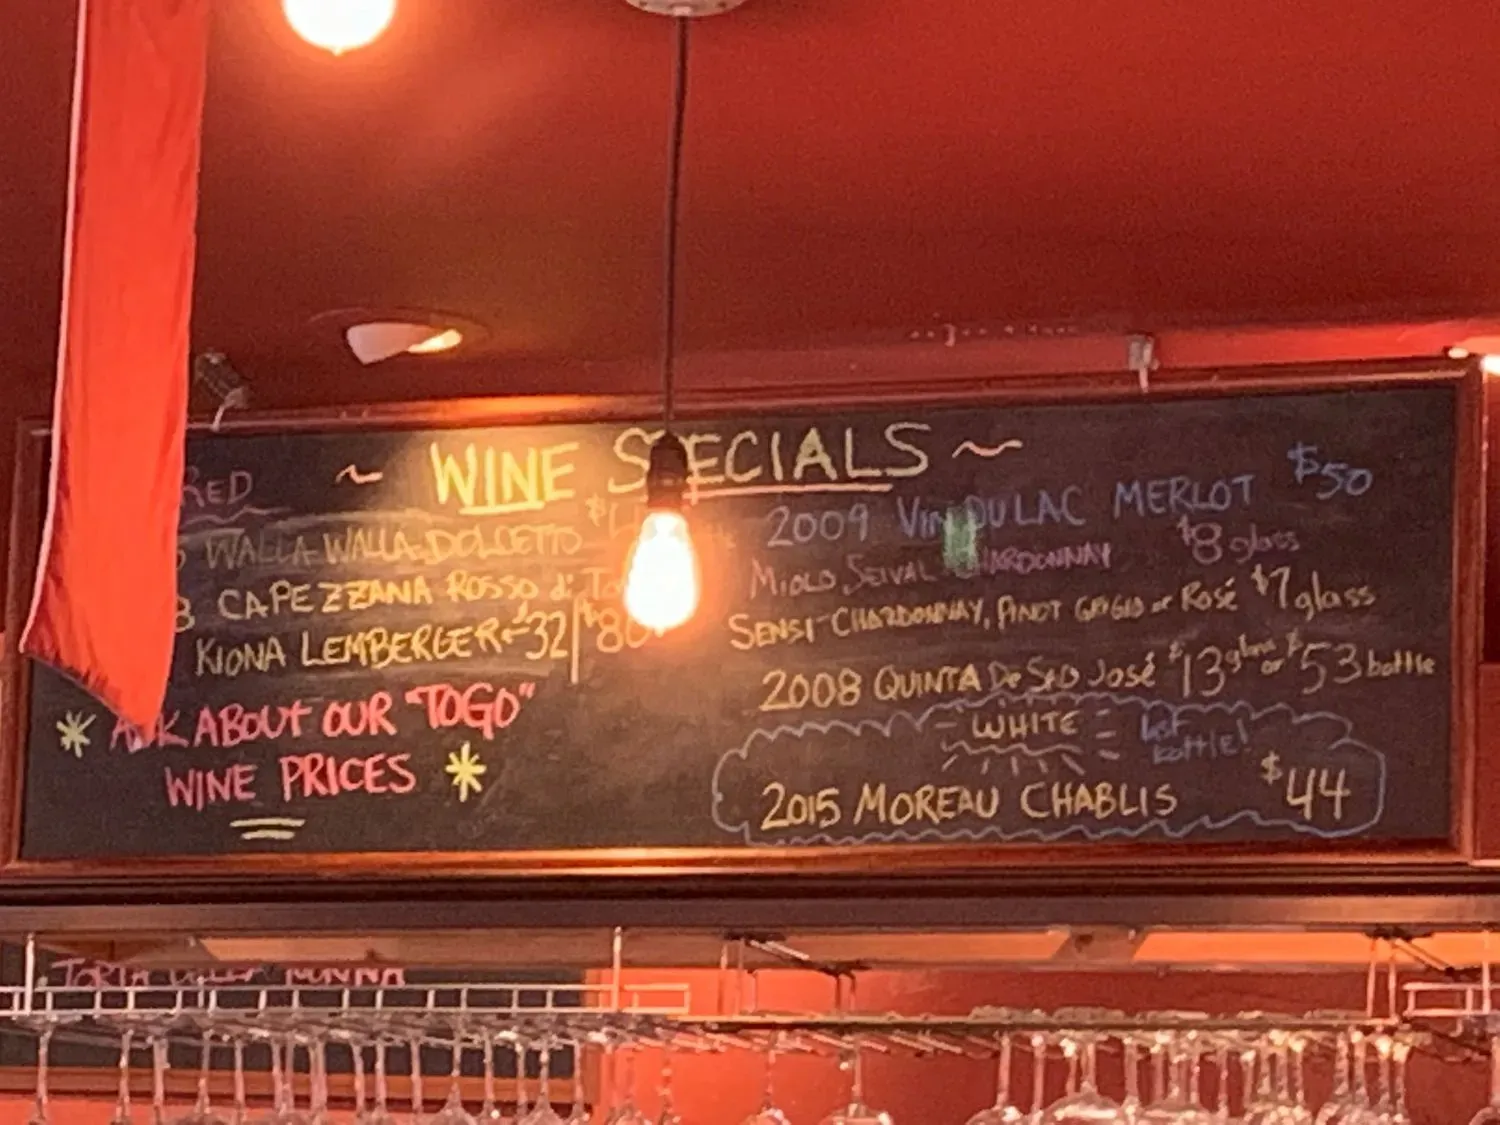 ~ WINE SPECIALS ~
RED
WALLA WALLA DOLCETTO $
CAPEZZANA ROSSO di
KIONA LEMBERGER $32
* ASK ABOUT OUR "TOGO"
WINE PRICES *
2009 VIN DU LAC MERLOT $50
MIOLO SEIVAL CHARDONNAY $8 glass
SENSI-CHARDONNAY, PINOT GRIGIO or ROSÉ $7 glass
2008 QUINTA De São José $13 glass or $53 bottle
WHITE
last
bottle!
2015 MOREAU CHABLIS $44
TORTA DELLA NONNA